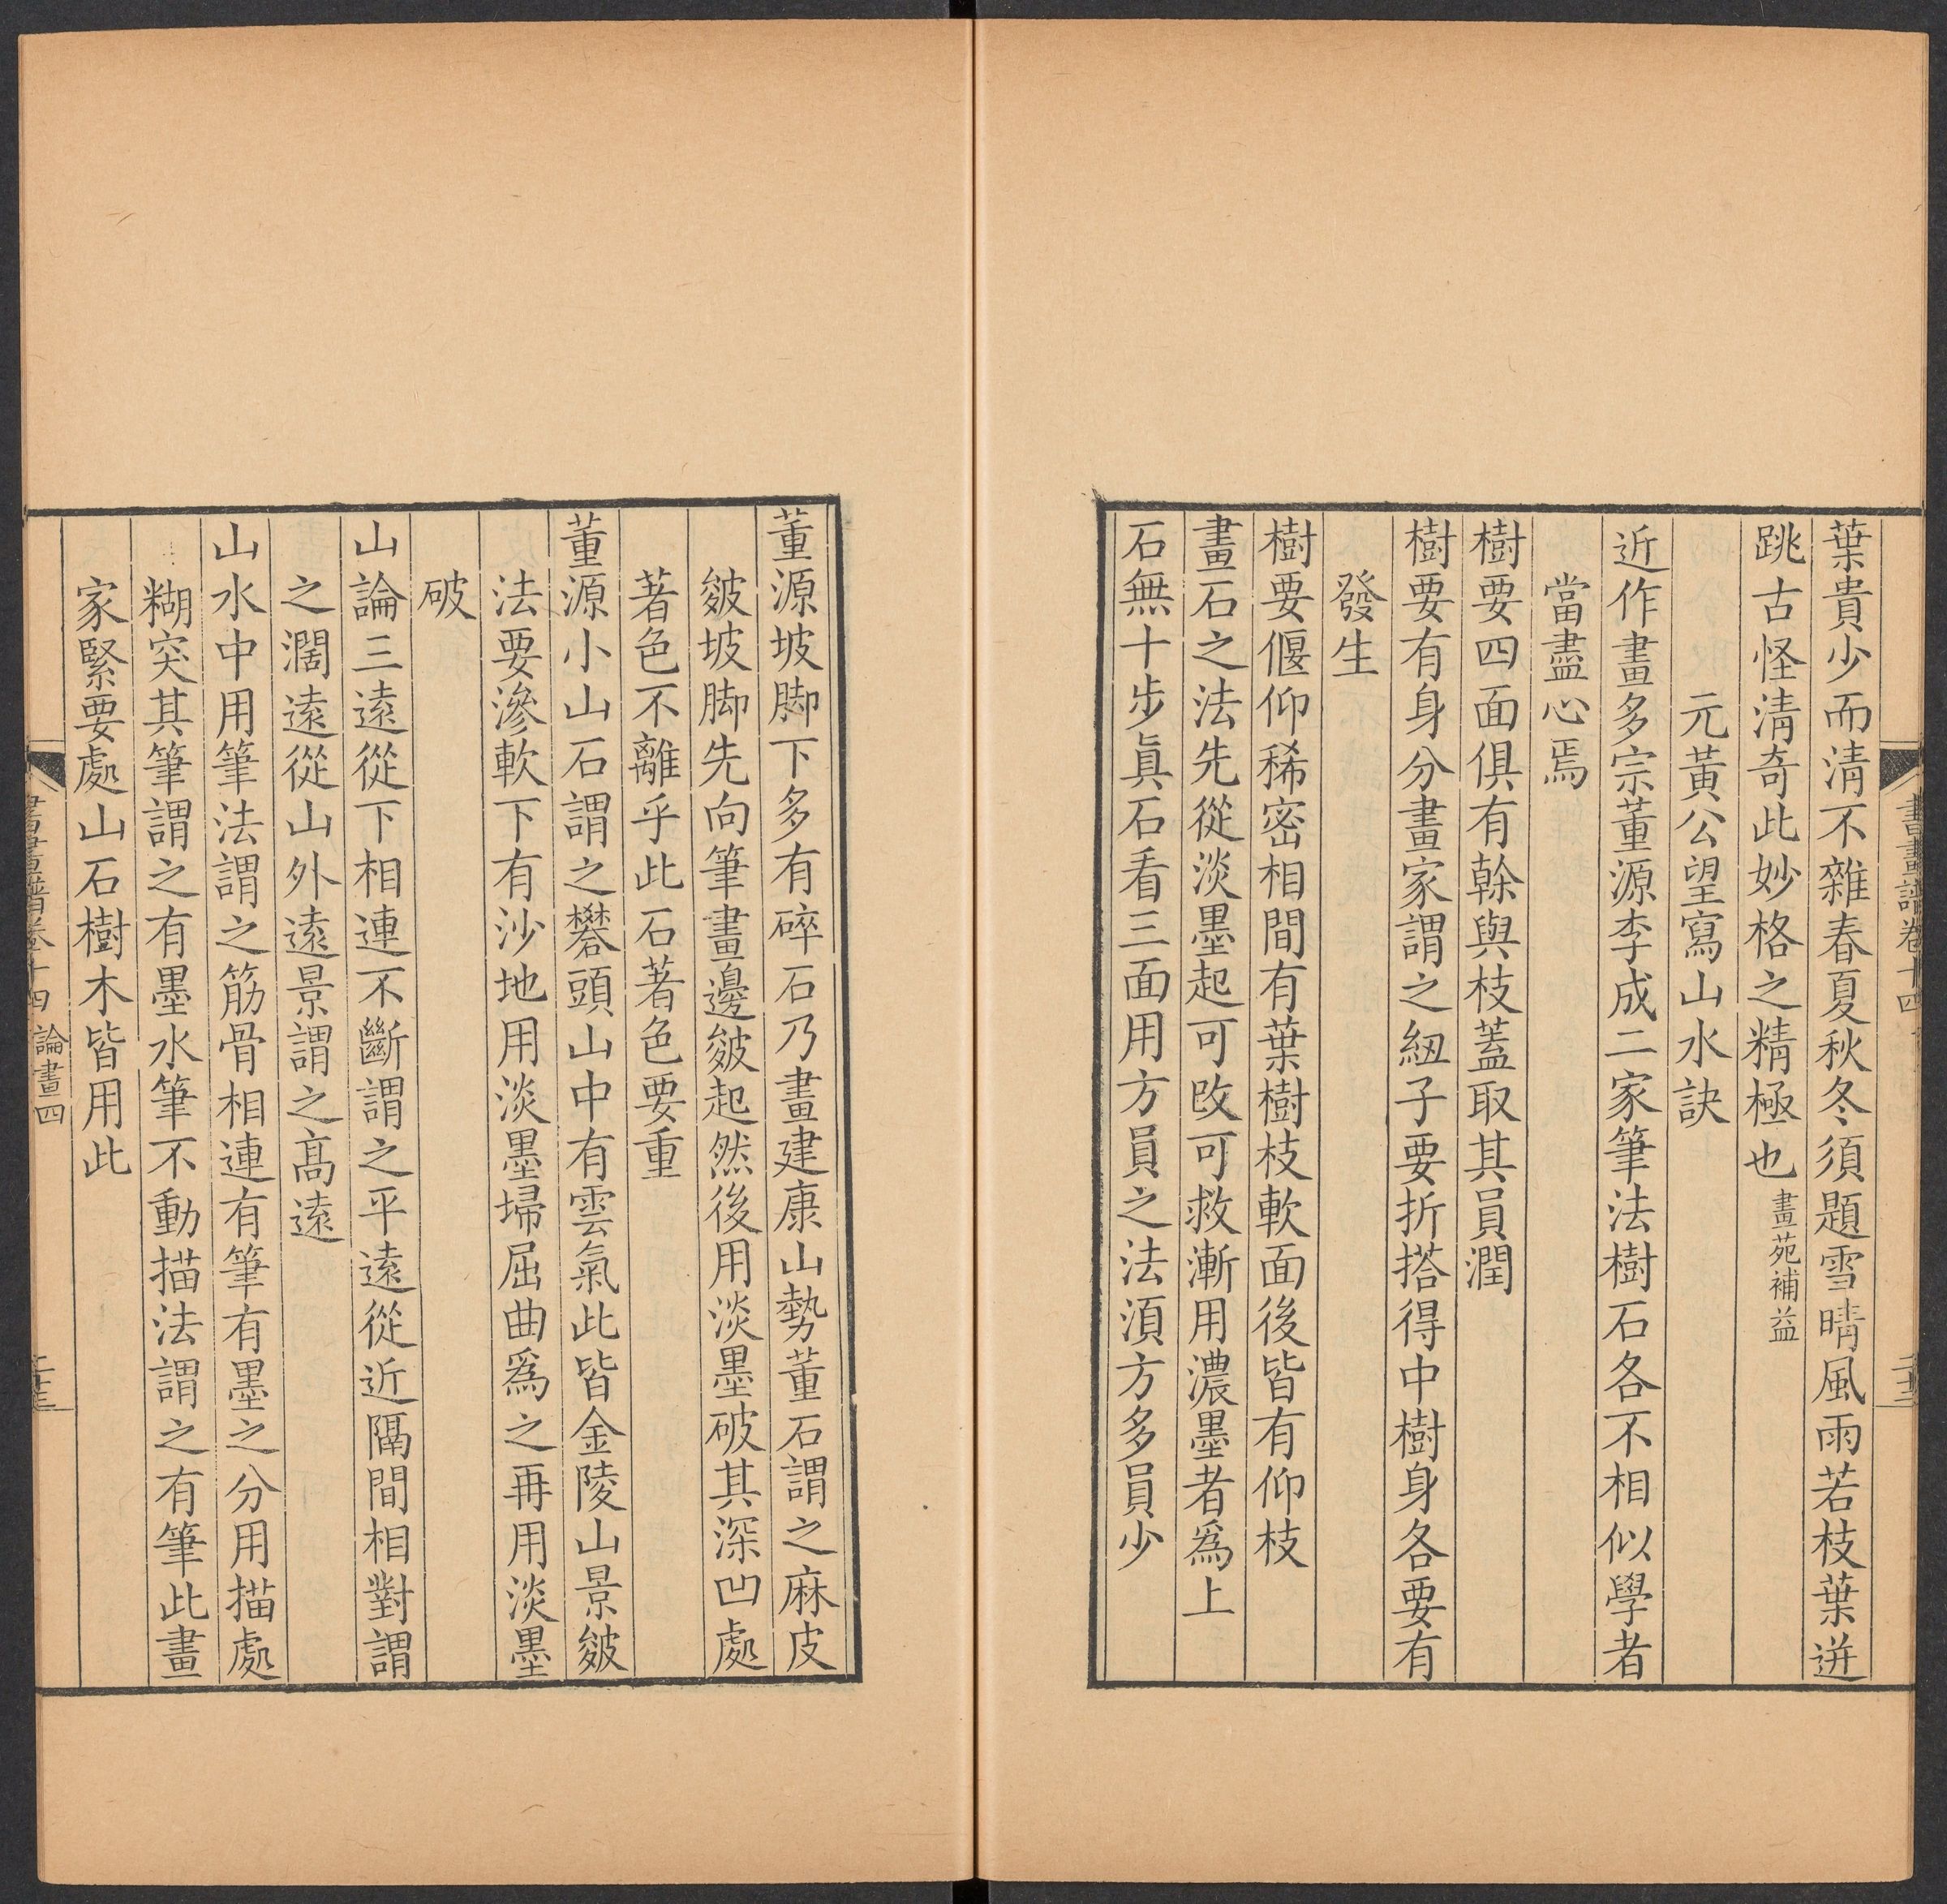 葉貴少而淸不雜春夏秋冬須題雪晴風雨若枝葉迸
跳古怪淸奇此妙格之精極也畫苑補益
元黃公望寫山水訣
近作畫多宗董源李成二家筆法樹石各不相似學者
當盡心焉
樹要四面俱有幹與枝蓋取其員潤
樹要有身分畫家謂之紐子要折搭得中樹身各要有
發生
樹要偃仰稀密相間有葉樹枝軟面後皆有仰枝
畫石之法先從淡墨起可改可救漸用濃墨者爲上
石無十步眞石看三面用方員之法湏方多員少
董源坡脚下多有碎石乃畫建康山勢董石謂之麻皮
皴坡脚先向筆畫邊皴起然後用淡墨破其深凹處
著色不離乎此石著色要重
董源小山石謂之礬頭山中有雲氣此皆金陵山景皴
法要滲軟下有沙地用淡墨埽屈曲爲之再用淡墨
破
山論三遠從下相連不斷謂之平遠從近隔間相對謂
之濶遠從山外遠景謂之高遠
山水中用筆法謂之筋骨相連有筆有墨之分用描處
糊突其筆謂之有墨水筆不動描法謂之有筆此畫
家緊要處山石樹木皆用此
書畫譜卷十四 論畫四